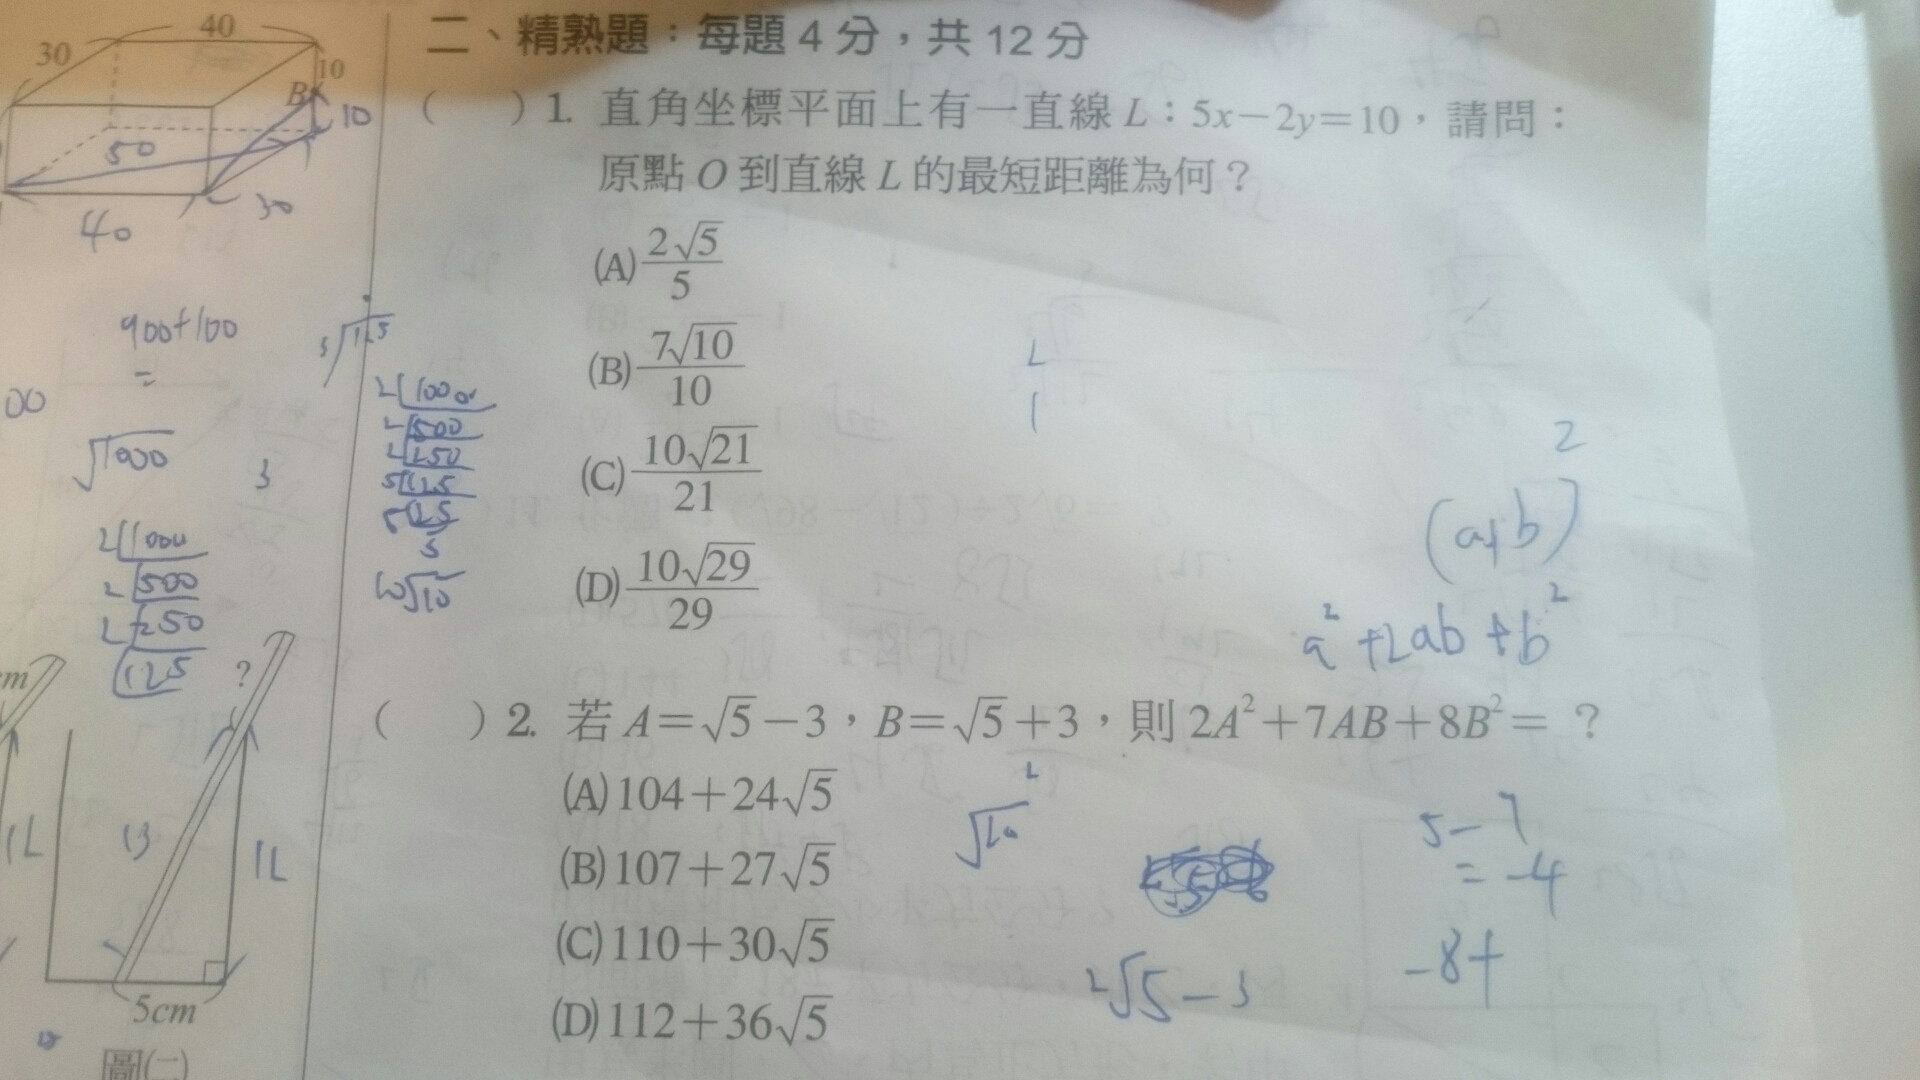 40
30
10
B
10
50
40
30
900+100
=
00
√1000
3
2 1000
2 500
2 250
125
2 1000
2 500
2 250
5 125
5 25
5
10√10
cm
?
12
13
12
5cm
圖(二)
二、精熟題：每題 4 分，共 12 分
( ) 1. 直角坐標平面上有一直線 L：5x－2y＝10，請問：
原點 O 到直線 L 的最短距離為何？
(A) 2√5/5
(B) 7√10/10
(C) 10√21/21
(D) 10√29/29
2
(a+b)
a²+2ab+b²
( ) 2. 若 A＝√5－3，B＝√5＋3，則 2A²＋7AB＋8B²＝？
(A) 104＋24√5
(B) 107＋27√5
(C) 110＋30√5
(D) 112＋36√5
2√5－3
= -4
-8+